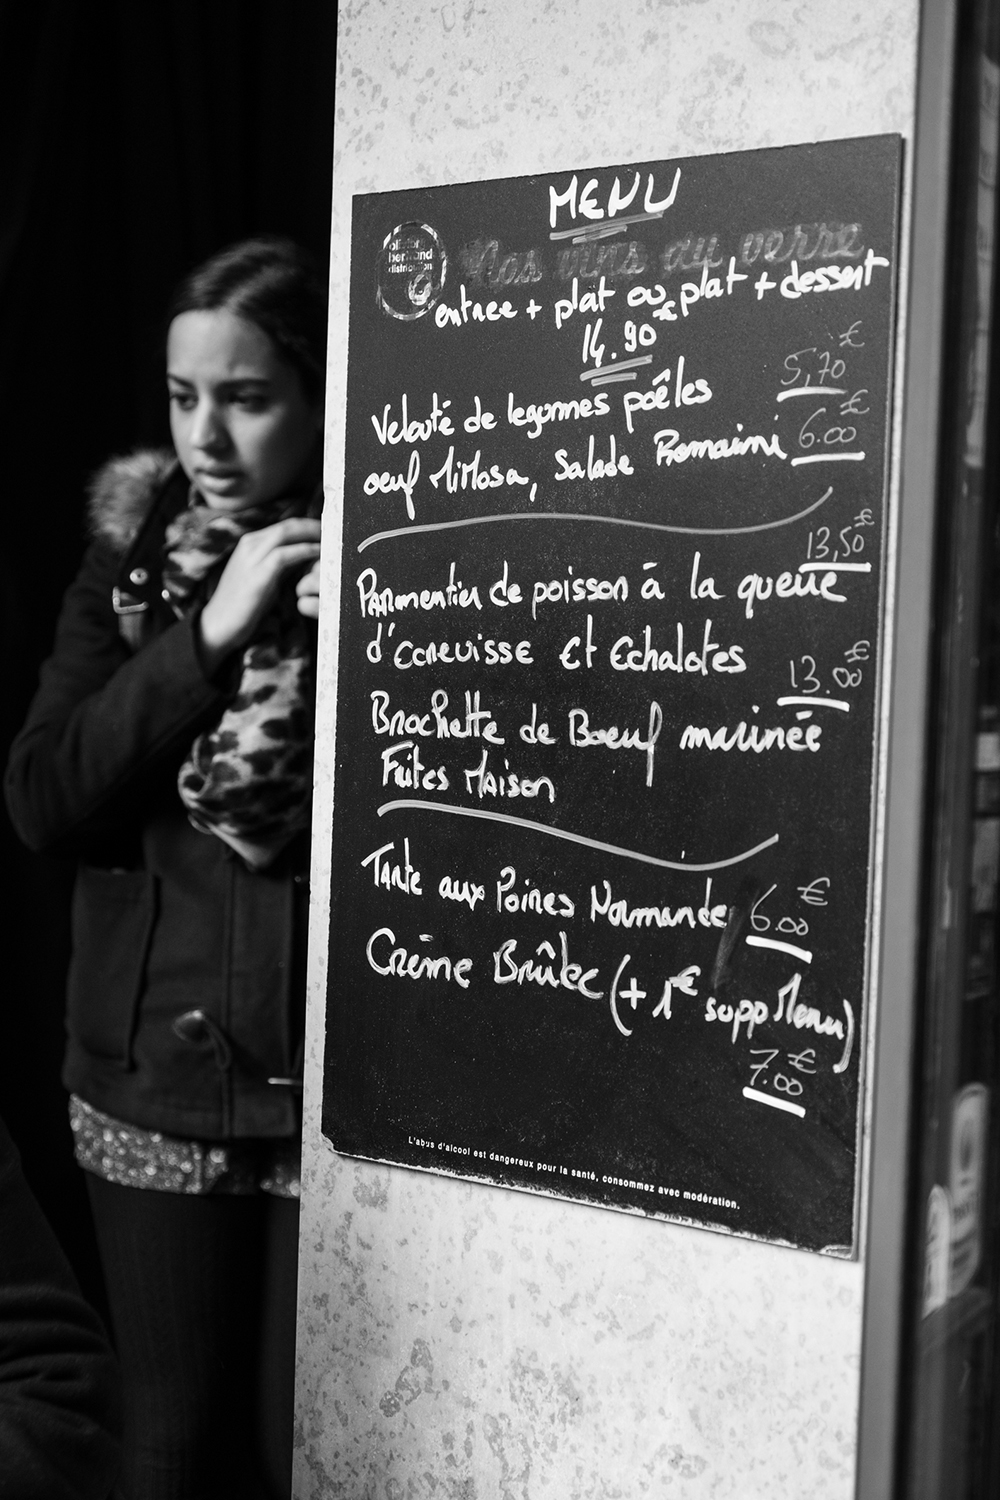 MENU
olivier bertrand distribution
Nos vins au verre
entree + plat ou plat + dessert
14.90€
5,70€
Velouté de legumes poêles
6.00€
oeuf Mimosa, Salade Romaine
13,50€
Parmentier de poisson à la queue
d'Ecrevisse Et Echalotes
13.00€
Brochette de Boeuf marinée
Frites Maison
Tarte aux Poires Normande 6.00€
Crème Brûlée (+ 1€ supp Menu)
7.00€
L'abus d'alcool est dangereux pour la santé, consommez avec modération.